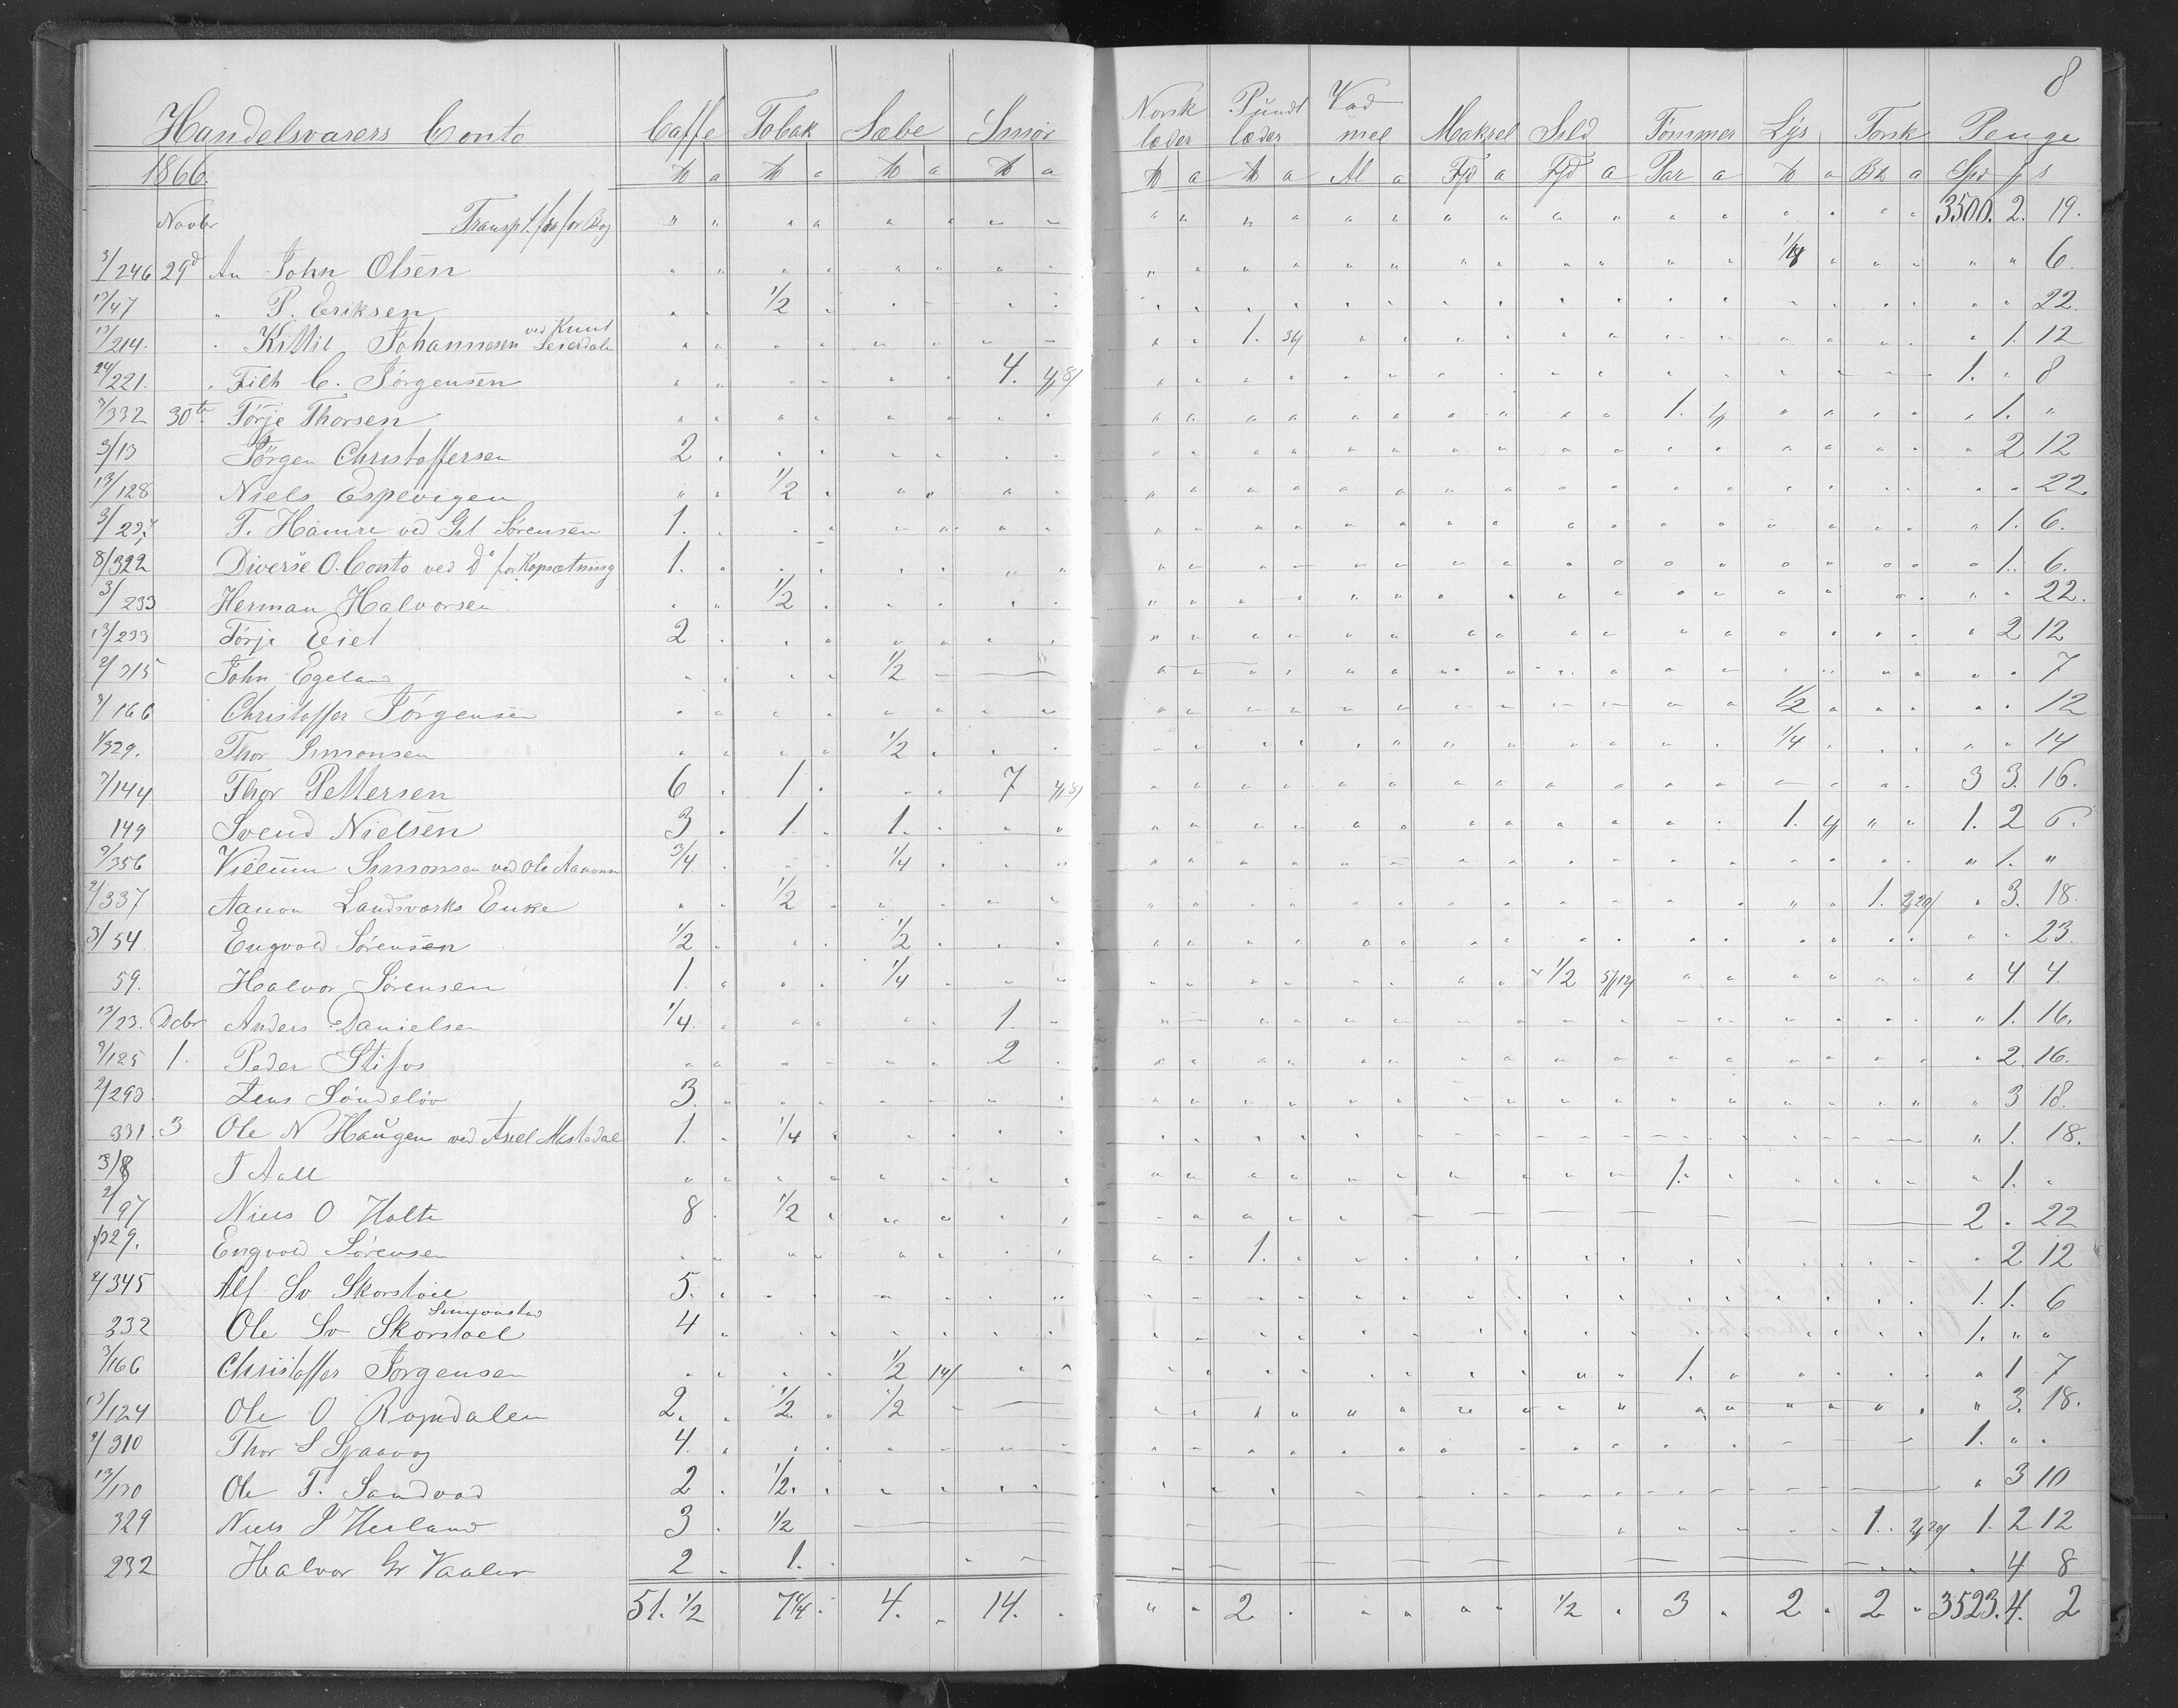 8
Handelsvarers Conto Caffe Tobak Sæbe Smør Norsk læder Pundt læder Vadmel Makrel Sild Tømmer Lys Torsk Penge
1866 ℔ a ℔ a ℔ a ℔ a ℔ a ℔ a Al a Fjd a Fjd a Par a ℔ a Bk a Spd ß s
Novbr Transpt. fra for Bog 3500. 2. 19.
3/246 29d An John Olsen 6.
13/47 " P. Eriksen 1/2 22.
13/214. " Kittil Johannesen ved Knut 1. 36/ 1. 12
24/221. " Filh C. Jørgensen 4. 4/8/ 1. " 8
7/332 30te Tørje Thorsen 1. 1. "
3/13 Jørgen Christoffersen 2 2 12
13/128 Niels Espevigen 1/2 22.
T. Hamre ved Sørensen 1. 1. 6.
8/322 Diverse O. Conto ved Do for Kopsætning 1. 1. 6.
3/233 Herman Halvorsen 1/2 22.
13/233 Tørje Eiet 2 2 12
2/315 John Egeland 1/2 7
7/166 Christoffer Jørgensen 1/2 12
1/329. Thor Simonsen 1/2 1/4 14
7/144 Thor Pettersen 6 1 7 4/8/ 3 3. 16.
149 Svend Nielsen 3 1 1. 1. 1. 2 6.
9/356 Villum Simonsen ved Ole Aanonsen 3/4 1/4 " 1. "
2/337 Aanon Landsværks Enke 1/2 1. 3. 18.
3/54 Engvold Sørensen 1/2 1/2 23.
59. Halvor Sørensen 1. 1/4 1/2 4 4.
13/23. Dcbr Anders Danielsen 1/4 1. " 1. 16.
7/125 1. Peder Stifos 2 2. 16.
2/293 Jens Søndeløv 3. " 3 18.
331. 3 Ole N Haugen ved Axel Mestadal 1. 1/4 " 1. 18.
3/8 J Aall 1. 1. "
2/97 Niels O Holte 8 1/2 2 " 22
1/329. Engvold Sørensen 1. 2 12
2/345 Alf Sv Skorstøel 5. 1. 1. 6
232 Ole Sv Skorstøel 4 1. " "
3/166 Christoffer Jørgensen 1/2 14/ 1. 1 7
13/124 Ole O Ropndalen 2. 1/2 1/2 " 3. 18.
2/310 Thor S Sjaavog 4. 1. " "
13/130 Ole T. Sandvad 2 1/2 3 10
329 Niels J Hesland 3 1/2 1. 1. 2 12
232 Halvor Gr Vaaler 2 1. 4 8
51. 1/2 7 1/4 4. 14. 2 1/2 3 2 2 3523. 4. 2